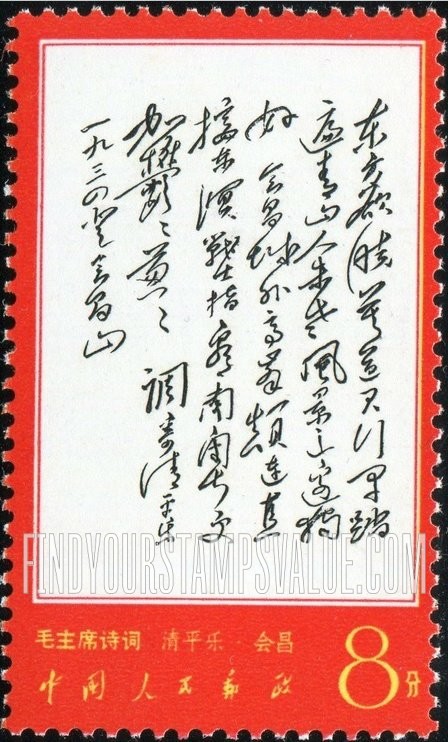 东方欲晓莫道君行早踏
遍青山人未老风景这边独
好会昌城外高峰颠连直
接东溟战士指看南粤更
加鬱〻葱〻
调寄清平乐
一九三四登会昌山
FINDYOURSTAMPSVALUE.COM
毛主席诗词 清平乐·会昌
中国人民邮政
8分